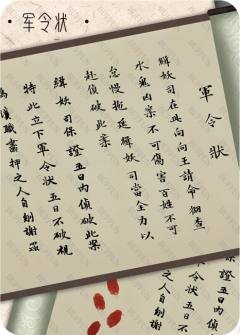 军令状
軍令狀
緝妖司在此向向王請命徊查
水鬼內宗不可傷害百姓不可
怠慢拖延緝妖司當全力以
赴偵破此案
緝妖司保證五日內偵破此案
特此立下軍令狀五日不破視
為瀆職畫押之人自刎謝罪